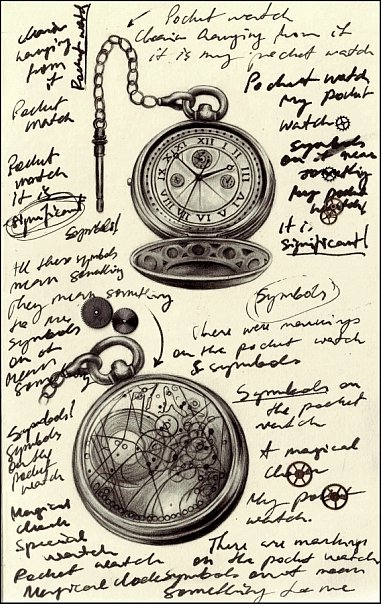 Pocket watch
chain hanging from it
it is my pocket watch
chain
hanging
from
it
Pocket watch
Pocket
watch
Pocket
watch
it is
significant
Symbols!
Pocket watch
My pocket
watch
Symbols
on it mean
something
My pocket
watch!
it is
significant!
XII
All these symbols
mean something
They mean something
to me
Symbols
on it
mean
something
Symbols!
There were markings
on the pocket watch
& symbols
Symbols on
the pocket
watch
A magical
clock
My pocket
watch.
Symbols!
Symbols
on the
pocket
watch
Magical
clock
Special
watch
Pocket watch
Magical clock
There are markings
on the pocket watch
Symbols on it mean
something to me